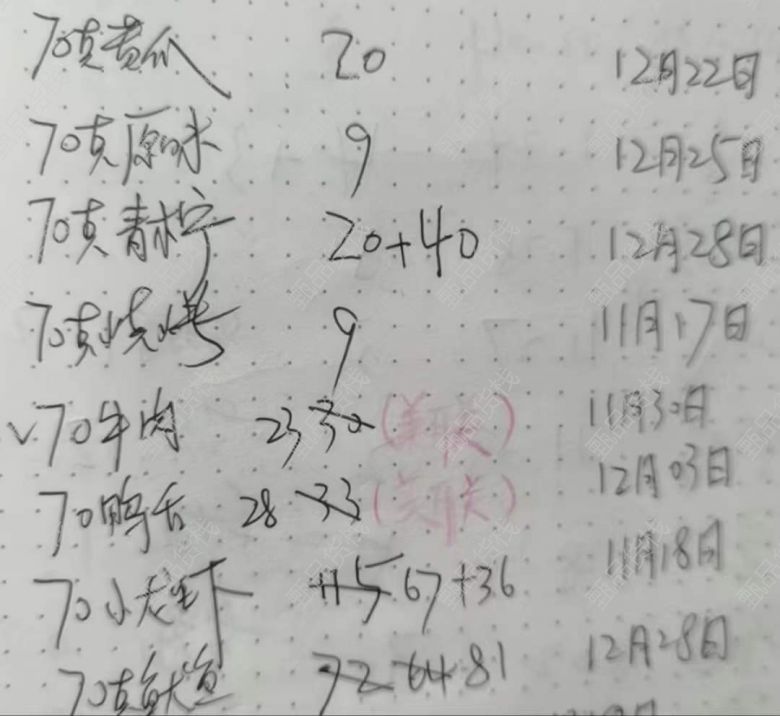 70克黄瓜 20 12月22日
70克原味 9 12月25日
70克青柠 20+40 12月28日
70克烧烤 9 11月17日
√70牛肉 23 30 (美联) 11月30日
70鸭舌 28 33 (美联) 12月03日
70小龙虾 115 67+36 11月18日
70克鱿鱼 72 64 81 12月28日